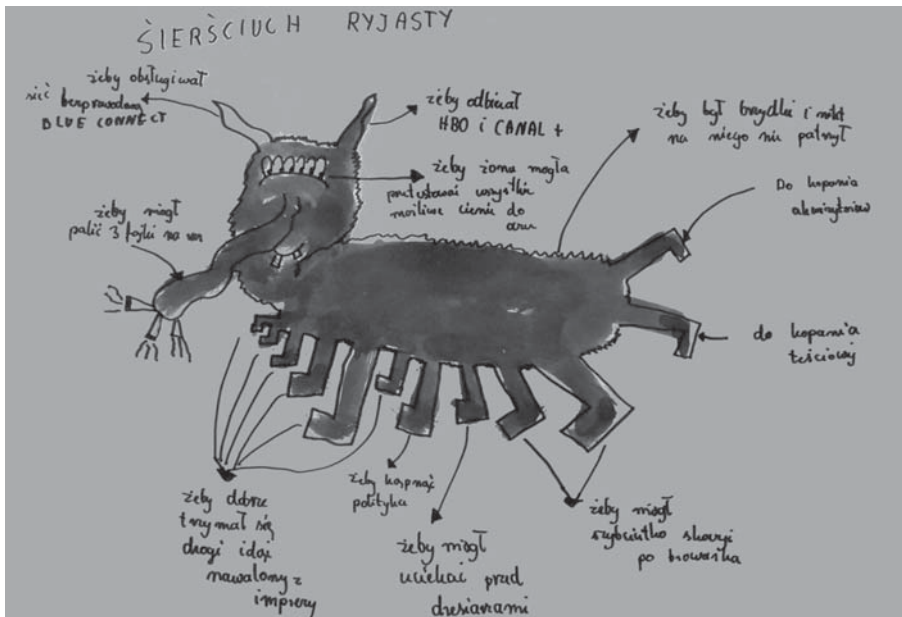 ŚIERŚCIUCH RYJASTY
żeby obsługiwał
sieć bezprzewodową
BLUE CONNECT
żeby odbierał
HBO i CANAL +
żeby był brzydki i nikt
na niego nie patrzył
żeby żona mogła
przetestować wszystkie
możliwe cienie do
oczu
Do kopania
żeby mógł
palić 3 fajki na raz
do kopania
teściowej
żeby dobrze
trzymał się
drogi idąc
nawalony z
imprezy
żeby kopnąć
polityka
żeby mógł
uciekać przed
dresiarzami
żeby mógł
szybciutko skoczyć
po browarka